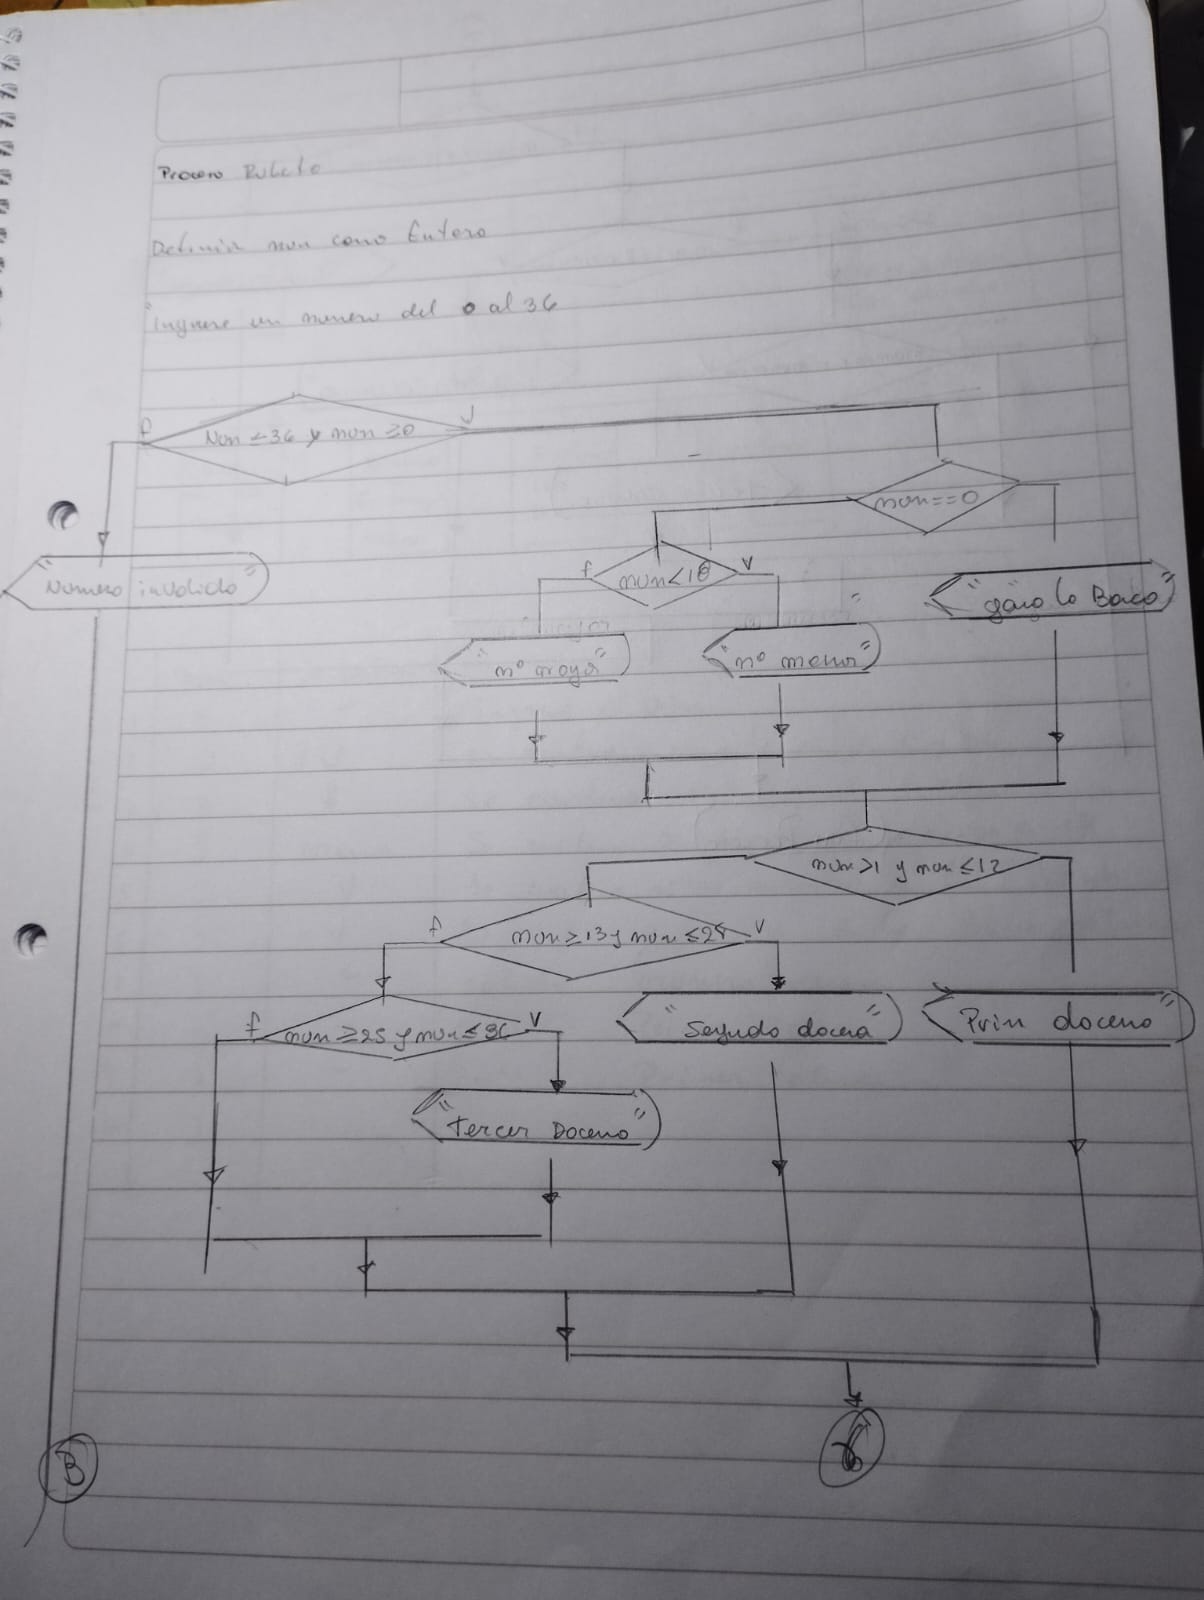 Proceso Ruleta
Definir num como Entero
"Ingrese un numero del 0 al 36
f Num ≤36 y num ≥0 V
num==0
f num<18 V
"Numero invalido"
"gano la Banca"
"nº mayor"
"nº menor"
num>1 y num ≤12
f num≥13 y num ≤24 V
f num≥25 y num≤36 V
"Segundo docena"
"Prim doceno"
"Tercer Doceno"
B